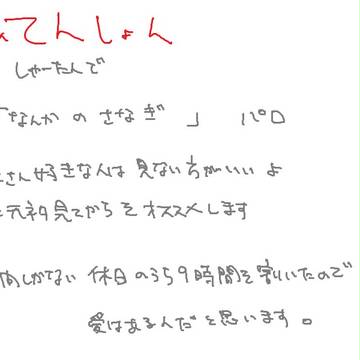 てんしょん
しゃーたんで
「なんか の さなぎ 」 パロ
さん好きな人は 見ない方がいい よ
元ネタ見てからをオススメします
しかない 休日のうち9時間を割いたので
愛はあるんだ と思います。